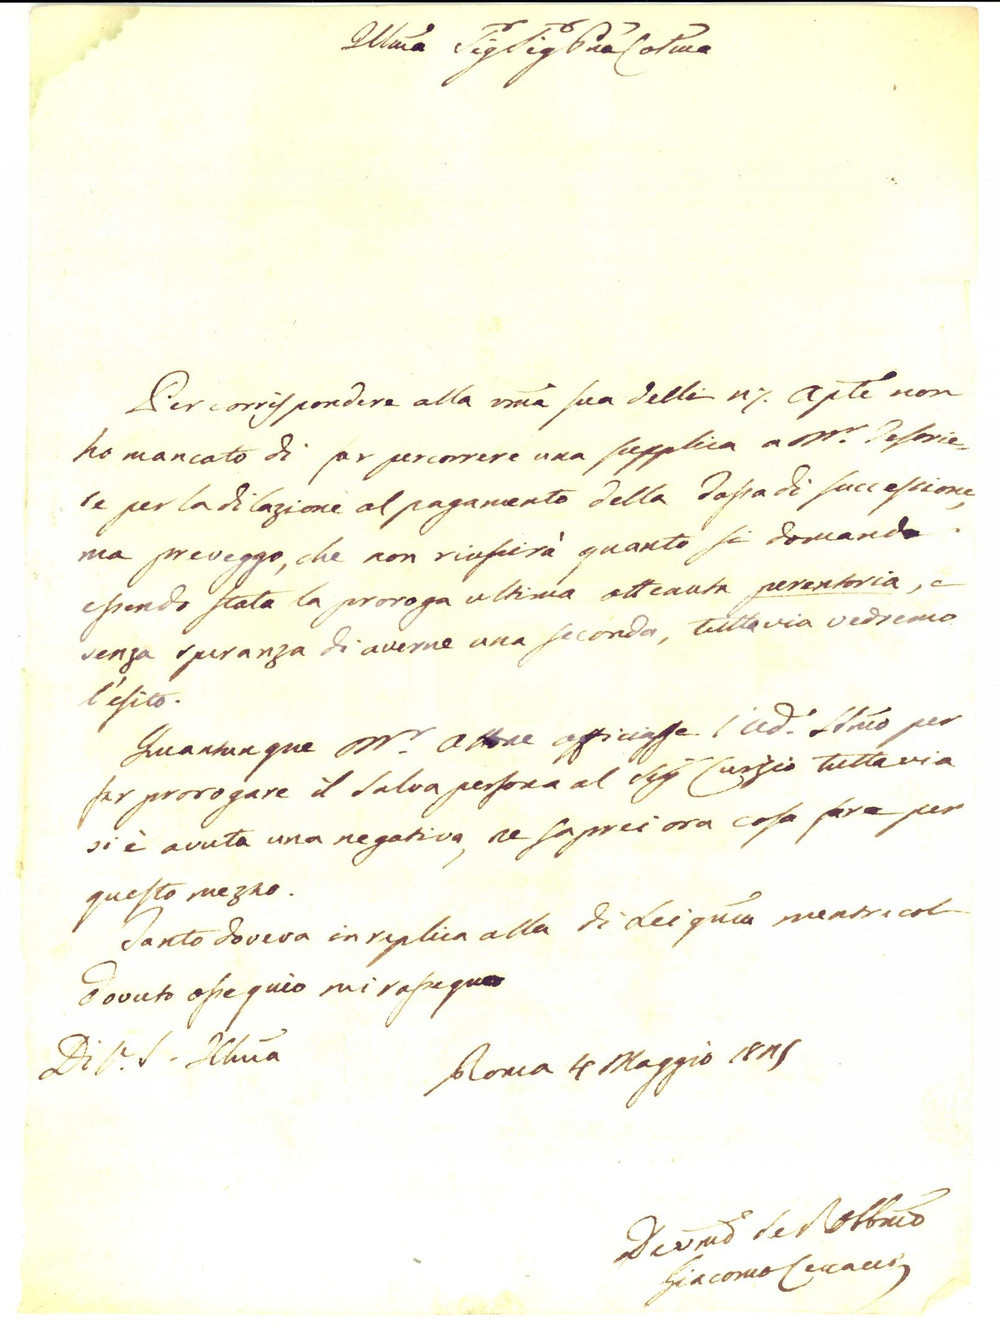 Illma Sigr Sigr Pna Colma
Per corrispondere alla vma sua delli 27. Aple non
ho mancato di far percorrere una supplica a Mr. Tesorie-
re per la dilazione al pagamento della Tassa di successione,
ma preveggo, che non riuscirà quanto si domanda
essendo stata la proroga ultima ottenuta perentoria, e
senza speranza di averne una seconda, tuttavia vedremo
l'esito.
Quantunque Mr. officiasse l' per
far prorogare il Salva persona al Sigr Curzio tuttavia
si è avuta una negativa, ne saprei ora cosa fare per
questo mezzo.
Tanto doveva in replica alla di Lei mentre col
dovuto ossequio mi rassegno
Di V. S. Illma
Roma 4 Maggio 1825
Devmo Se Obbmo
Giacomo